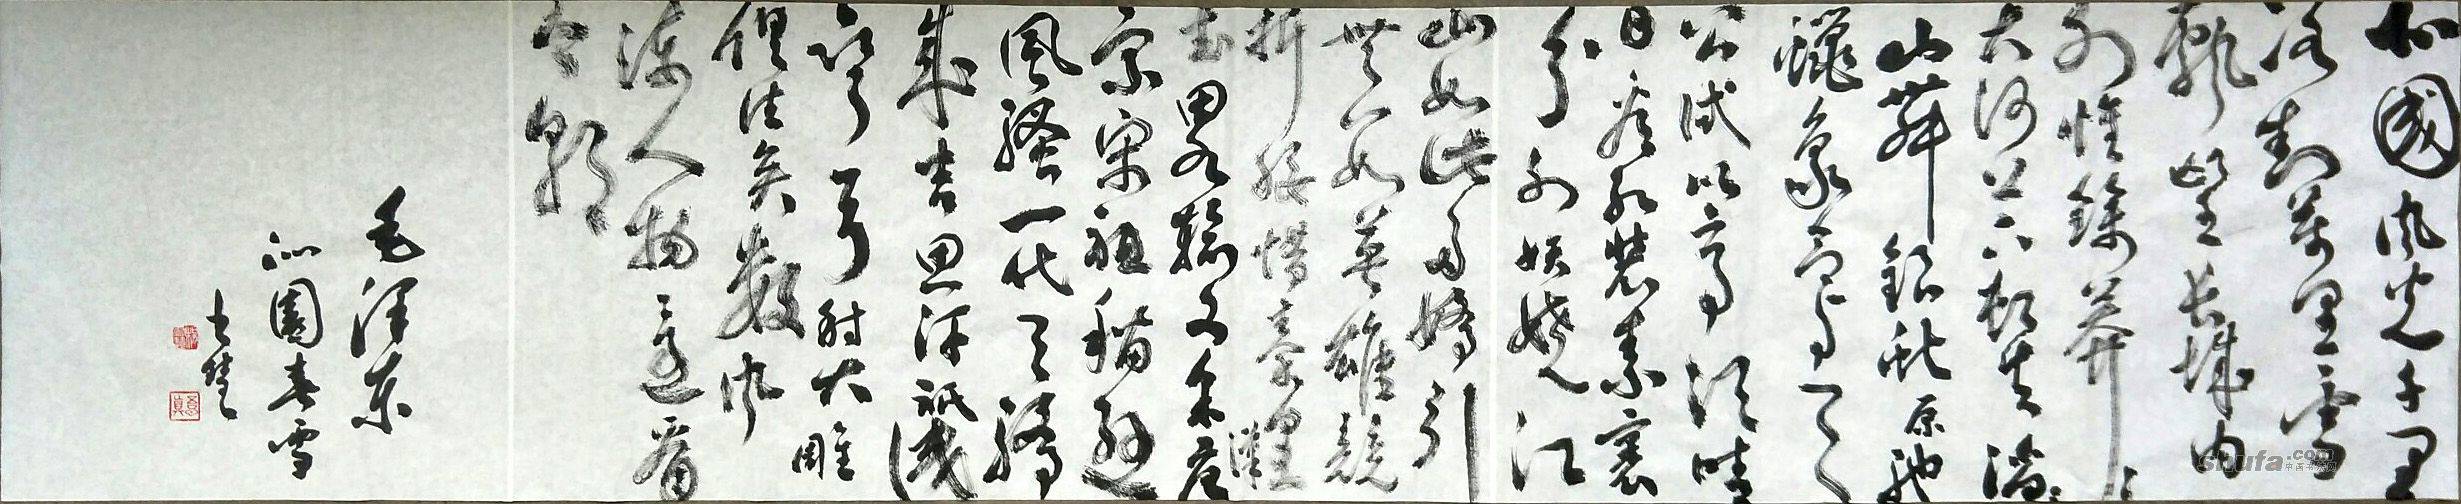 北國風光千里
冰封萬里雪
飄望長城内
外惟餘莽〻
大河上下頓失滔〻
山舞銀蛇原馳
蠟象欲與天
公試比高須晴
日看紅裝素裹
分外妖嬈江
山如此多嬌引
無數英雄競
折腰惜秦皇漢
武畧輸文采唐
宗宋祖稍遜
風騷一代天驕
成吉思汗祗識
彎弓射大雕
俱往矣數風
流人物還看
今朝
毛澤東
沁園春雪
shufa.com
中国书法网